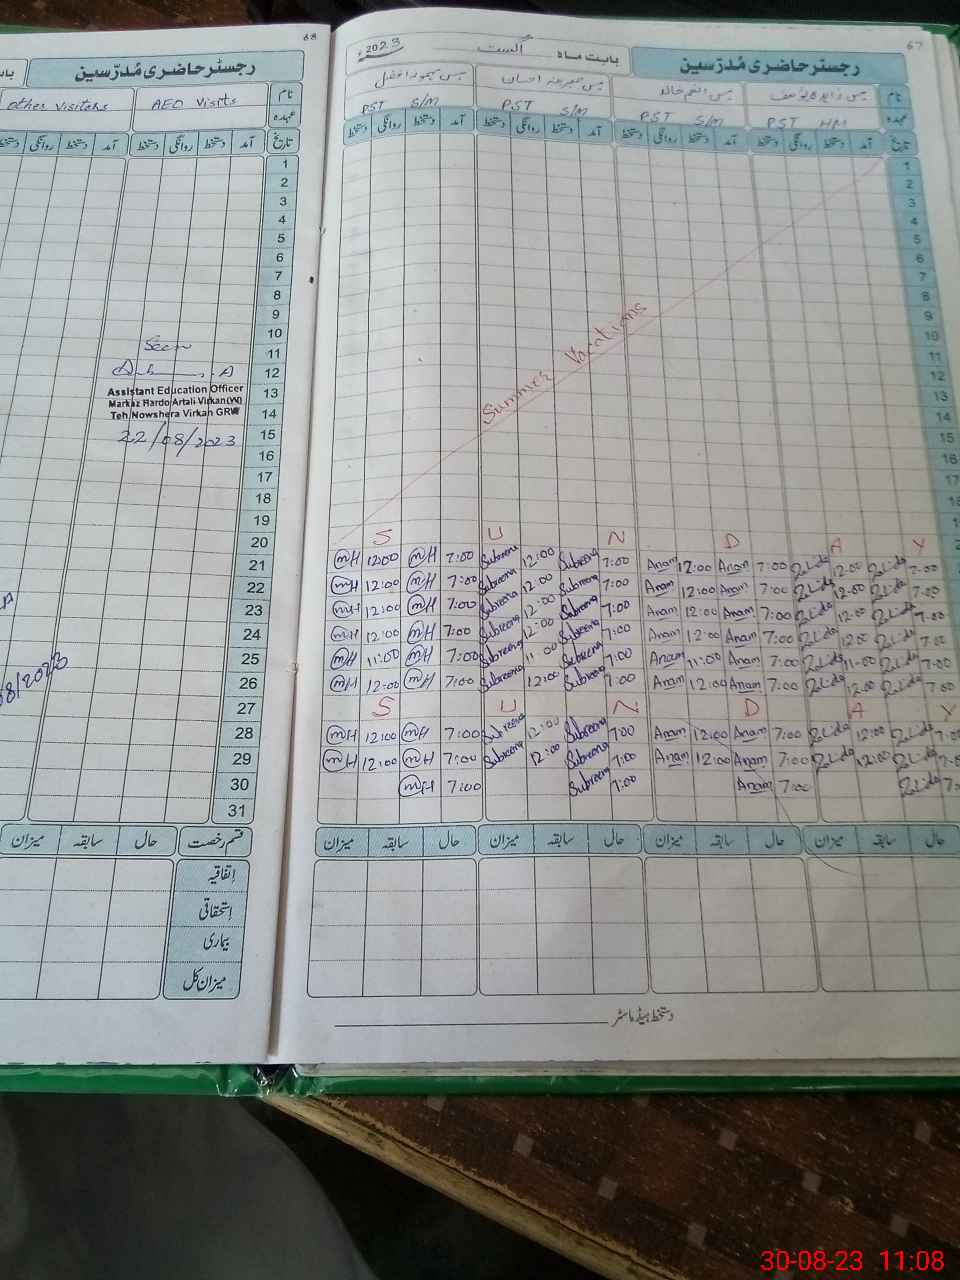 68
رجسٹر حاضری مُدرّسین
other visiters AEO Visits نام
عہدہ
دستخط روانگی دستخط آمد دستخط روانگی دستخط آمد تاریخ
1
2
3
4
5
6
7
8
9
10
Seen
11
12
Assistant Education Officer
13
Markaz Hardo Artali Virkan(W)
Teh Nowshera Virkan GRW
14
22/08/2023
15
16
17
18
19
20
21
22
23
24
25
8/2023
26
27
28
29
30
31
میزان سابقہ حال میزان سابقہ حال قسم رخصت
اتفاقیہ
استحقاقی
بیماری
میزان کل
67
رجسٹر حاضری مُدرّسین بابت ماہ اگست 2023
نام
عہدہ PST HM PST S/M PST S/M PST S/M
تاریخ آمد دستخط روانگی دستخط آمد دستخط روانگی دستخط آمد دستخط روانگی دستخط آمد دستخط روانگی دستخط
1
2
3
4
5
6
7
8
9
10
11
12
13
14
15
16
17
18
19
Summer Vacations
S U N D A Y
MH 12:00 MH 7:00 Subreena 12:00 Subreena 7:00 Anam 12:00 Anam 7:00 12:00 7:00
MH 12:00 MH 7:00 Subreena 12:00 Subreena 7:00 Anam 12:00 Anam 7:00 12:00 7:00
MH 12:00 MH 7:00 Subreena 12:00 Subreena 7:00 Anam 12:00 Anam 7:00 12:00 7:00
MH 12:00 MH 7:00 Subreena 12:00 Subreena 7:00 Anam 12:00 Anam 7:00 12:00 7:00
MH 11:00 MH 7:00 Subreena 11:00 Subreena 7:00 Anam 11:00 Anam 7:00 11:00 7:00
MH 12:00 MH 7:00 Subreena 12:00 Subreena 7:00 Anam 12:00 Anam 7:00 12:00 7:00
S U N D A Y
MH 12:00 MH 7:00 Subreena 12:00 Subreena 7:00 Anam 12:00 Anam 7:00 12:00
MH 12:00 MH 7:00 Subreena 12:00 Subreena 7:00 Anam 12:00 Anam 7:00 12:00
MH 7:00 Subreena 7:00 Anam 7:00
میزان سابقہ حال میزان سابقہ حال میزان سابقہ حال میزان سابقہ حال
دستخط ہیڈ ماسٹر
30-08-23 11:08